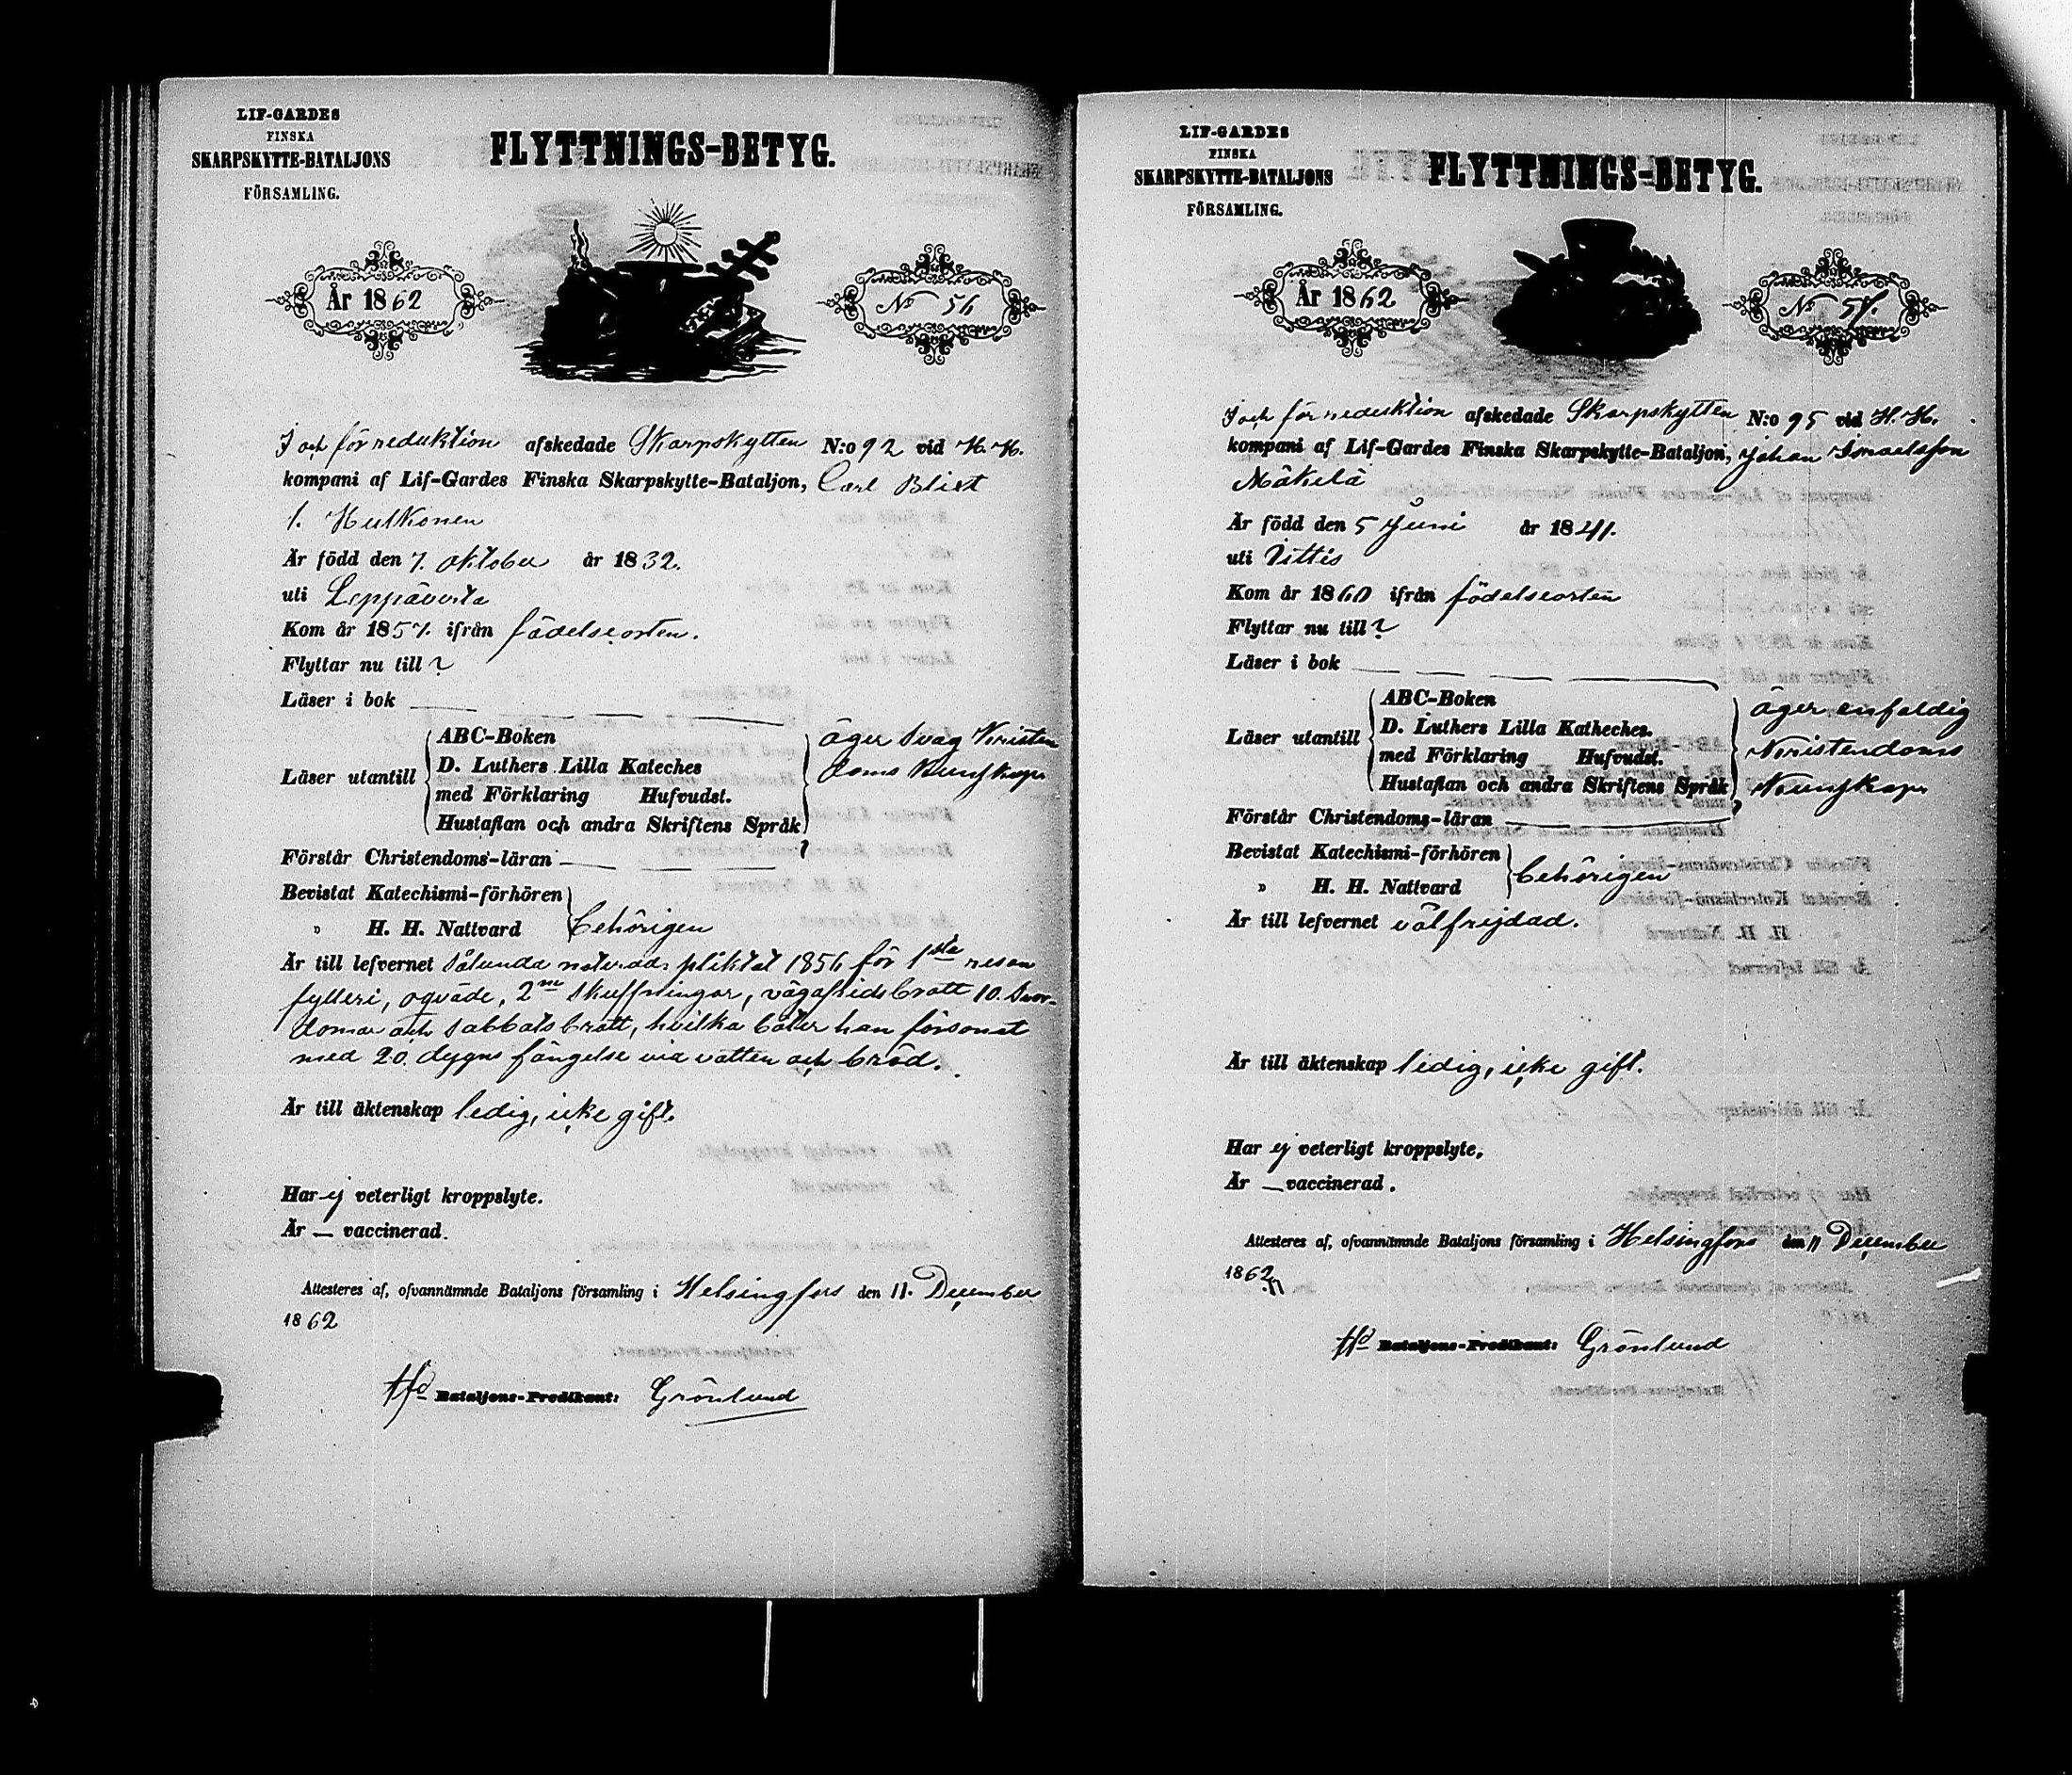 LIF-GARDES
FINSKA
SKARPSKYTTE-BATALJONS
FÖRSAMLING.
FLYTTNINGS-BETYG.
År 1862
No 56
I och för reduktion afskedade Skarpskytten N:o 92 vid H. H.
kompani af Lif-Gardes Finska Skarpskytte-Bataljon, Carl Blixt
f. Hulkonen
Är född den 7. oktober år 1832.
uti Leppävirta
Kom år 1857. ifrån födelseorten.
Flyttar nu till ?
Läser i bok
Läser utantill
ABC-Boken
D. Luthers Lilla Kateches
med Förklaring Hufvudst.
Hustaflan och andra Skriftens Språk
äger svag Kristen
doms kunskap
Förstår Christendoms-läran
Bevistat Katechismi-förhören
" H. H. Nattvard
behörigen
Är till lefvernet sålunda noterad: pliktat 1856 för 1sta resan
fylleri, oqväde, 2ne skuffningar, vägafridsbrott 10. Svor-
domar och sabbatsbrott, hvilka böter han försonat
med 20. dygns fängelse vid vatten och bröd.
Är till äktenskap ledig, icke gift.
Har ej veterligt kroppslyte.
Är — vaccinerad.
Attesteres af, ofvannämnde Bataljons församling i Helsingfors den 11. December
1862
tfd Bataljons-Predikant: Grönlund
LIF-GARDES
FINSKA
SKARPSKYTTE-BATALJONS
FÖRSAMLING.
FLYTTNINGS-BETYG.
År 1862
No 57.
I och för reduktion afskedade Skarpskytten N:o 95 vid H. H.
kompani af Lif-Gardes Finska Skarpskytte-Bataljon, Johan Ismaelsson
Mäkelä
Är född den 5 Juni år 1841.
uti Vittis
Kom år 1860 ifrån födelseorten
Flyttar nu till ?
Läser i bok
Läser utantill
ABC-Boken
D. Luthers Lilla Katheches.
med Förklaring Hufvudst.
Hustaflan och andra Skriftens Språk
äger enfaldig
Kristendoms
kunskap
Förstår Christendoms-läran
Bevistat Katechismi-förhören
" H. H. Nattvard
behörigen
Är till lefvernet välfrejdad.
Är till äktenskap ledig, icke gift.
Har ej veterligt kroppslyte.
Är — vaccinerad.
Attesteres af, ofvannämnde Bataljons församling i Helsingfors den 11 December
1862
tfd Bataljons-Predikant: Grönlund